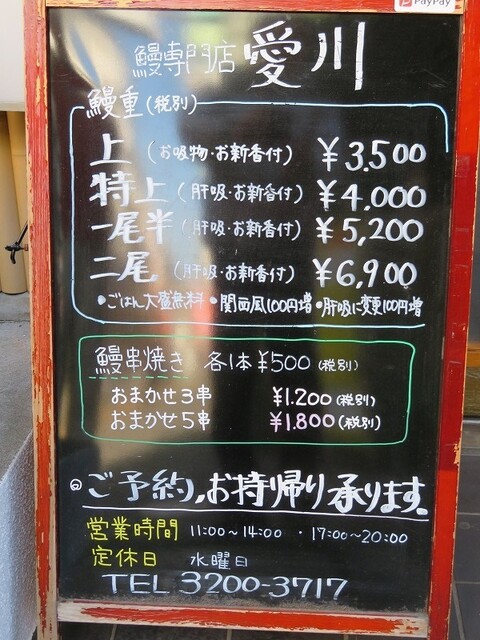 PayPay
鰻専門店 愛川
鰻重(税別)
上 (お吸物・お新香付) ¥3,500
特上 (肝吸・お新香付) ¥4,000
一尾半 (肝吸・お新香付) ¥5,200
二尾 (肝吸・お新香付) ¥6,900
•ごはん大盛無料 •関西風100円増 •肝吸に変更100円増
鰻串焼き 各1本¥500(税別)
おまかせ3串 ¥1,200(税別)
おまかせ5串 ¥1,800(税別)
ご予約,お持帰り承ります。
営業時間 11:00~14:00 ・17:00~20:00
定休日 水曜日
TEL 3200-3717